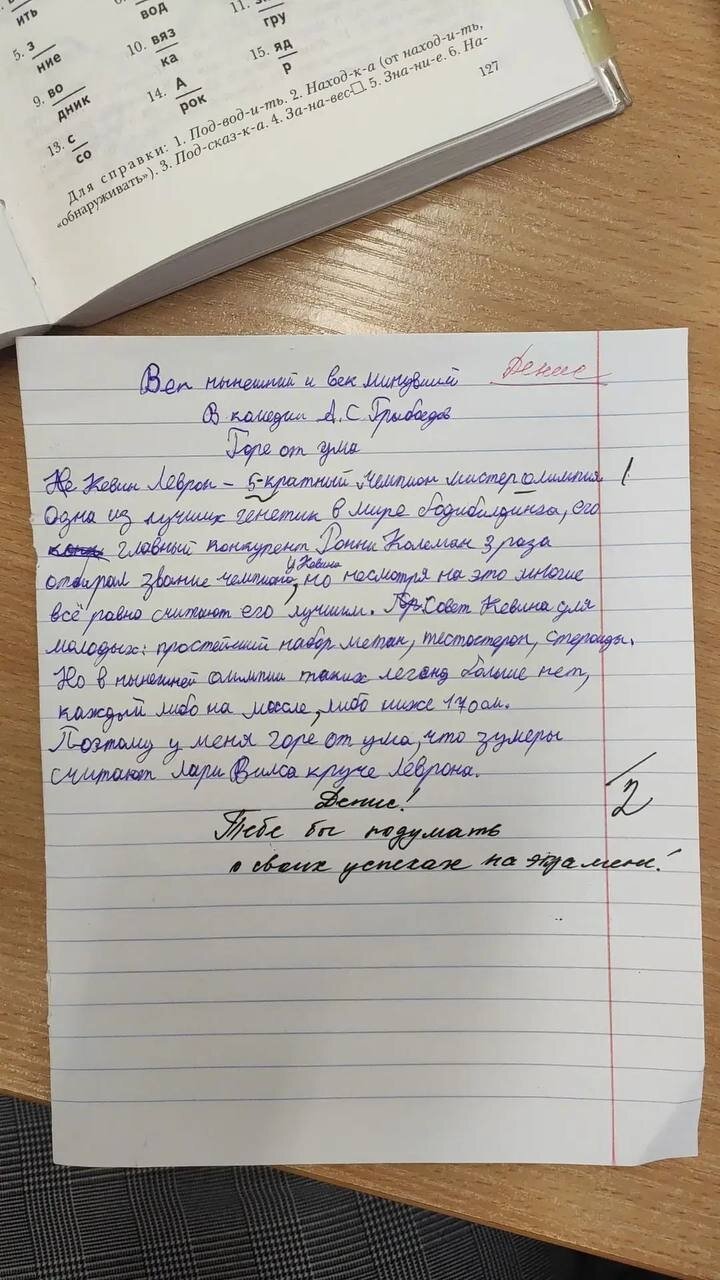 ить
вод
гру
5. з
ние
10. вяз
ка
15. яд
р
9. во
дник
14. А
рок
13. с
со
127
Для справки: 1. Под-вод-и-ть. 2. Наход-к-а (от наход-и-ть,
«обнаруживать»). 3. Под-сказ-к-а. 4. За-на-вес□. 5. Зна-ни-е. 6. На-
Век нынешний и век минувший Денис
В комедии А.С Грыбоедов
Горе от ума
Кевин Леврон – 5-кратный чемпион мистер олимпия.
Одна из лучших генетик в мире бодибилдинга, его
главный конкурент Ронни Колеман 3 раза
отбирал звание чемпиона у Кевина, но несмотря на это многие
всё равно считают его лучшим. Совет Кевина для
молодых: простейший набор метан, тестостерон, стероиды.
Но в нынешней олимпии таких легенд больше нет,
каждый либо на массе, либо ниже 170см.
Поэтому у меня горе от ума, что зумеры
считают Лари Вилса круче Леврона.
2
Денис!
Тебе бы подумать
о своих успехах на экзамене!